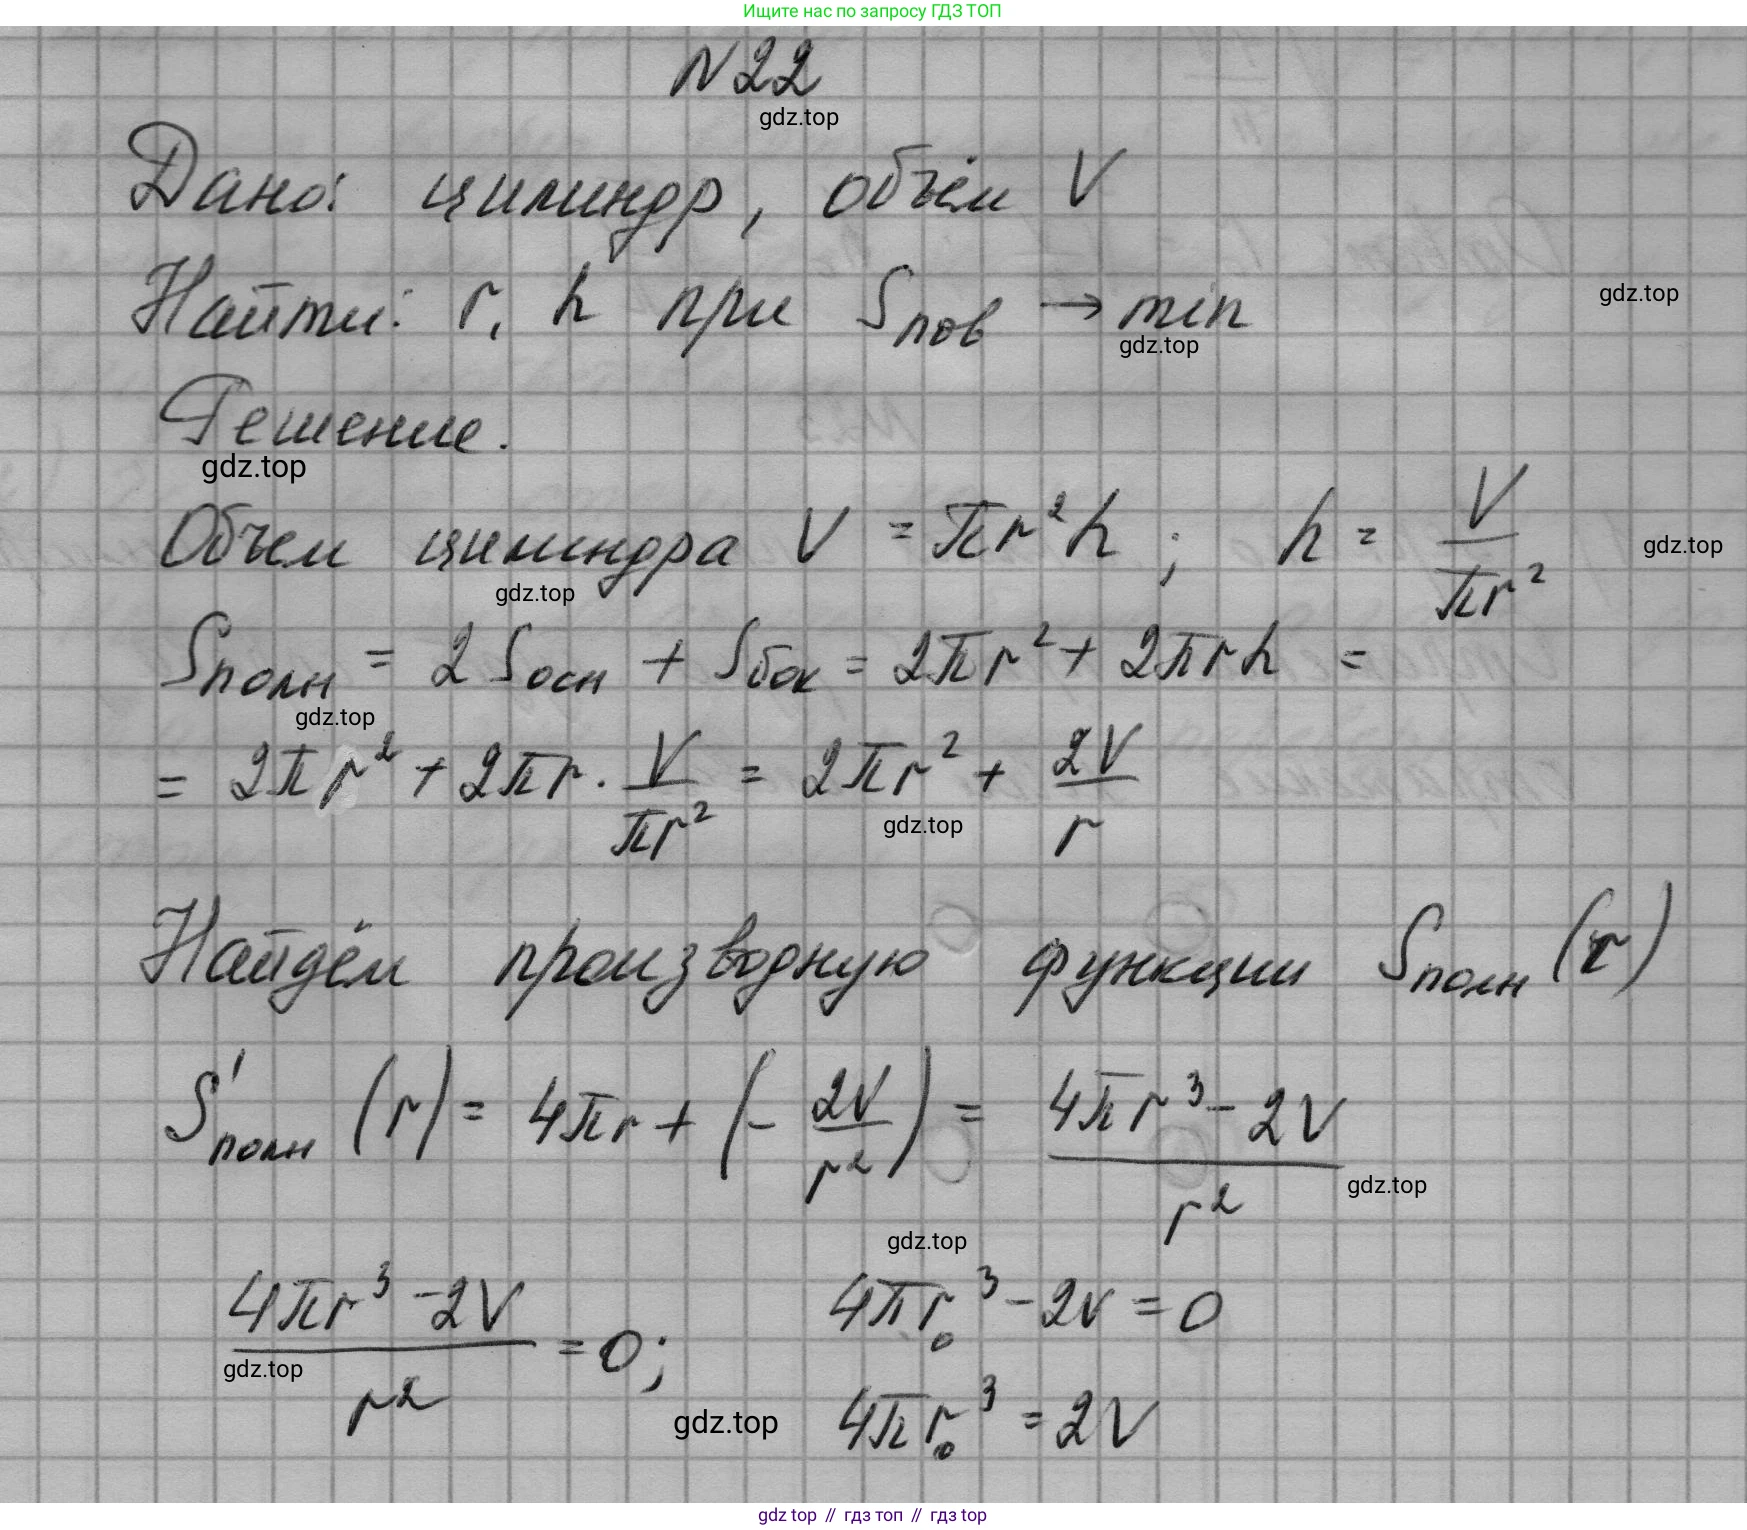 Ищите нас по запросу ГДЗ ТОП
N22
gdz.top
Дано: цилиндр, объём V
Найти: r, h при Sпов → min
gdz.top
gdz.top
Решение.
gdz.top
Объем цилиндра V = πr²h ; h = V/πr²
gdz.top
gdz.top
Sполн = 2 Sосн + Sбок = 2πr² + 2πrh =
gdz.top
= 2πr² + 2πr · V/πr² = 2πr² + 2V/r
gdz.top
Найдём производную функции Sполн (r)
S'полн (r) = 4πr + (- 2V/r²) = (4πr³ - 2V)/r²
gdz.top
gdz.top
(4πr³ - 2V)/r² = 0; 4πr₀³ - 2V = 0
gdz.top
4πr₀³ = 2V
gdz.top
gdz top // гдз топ // гдз top